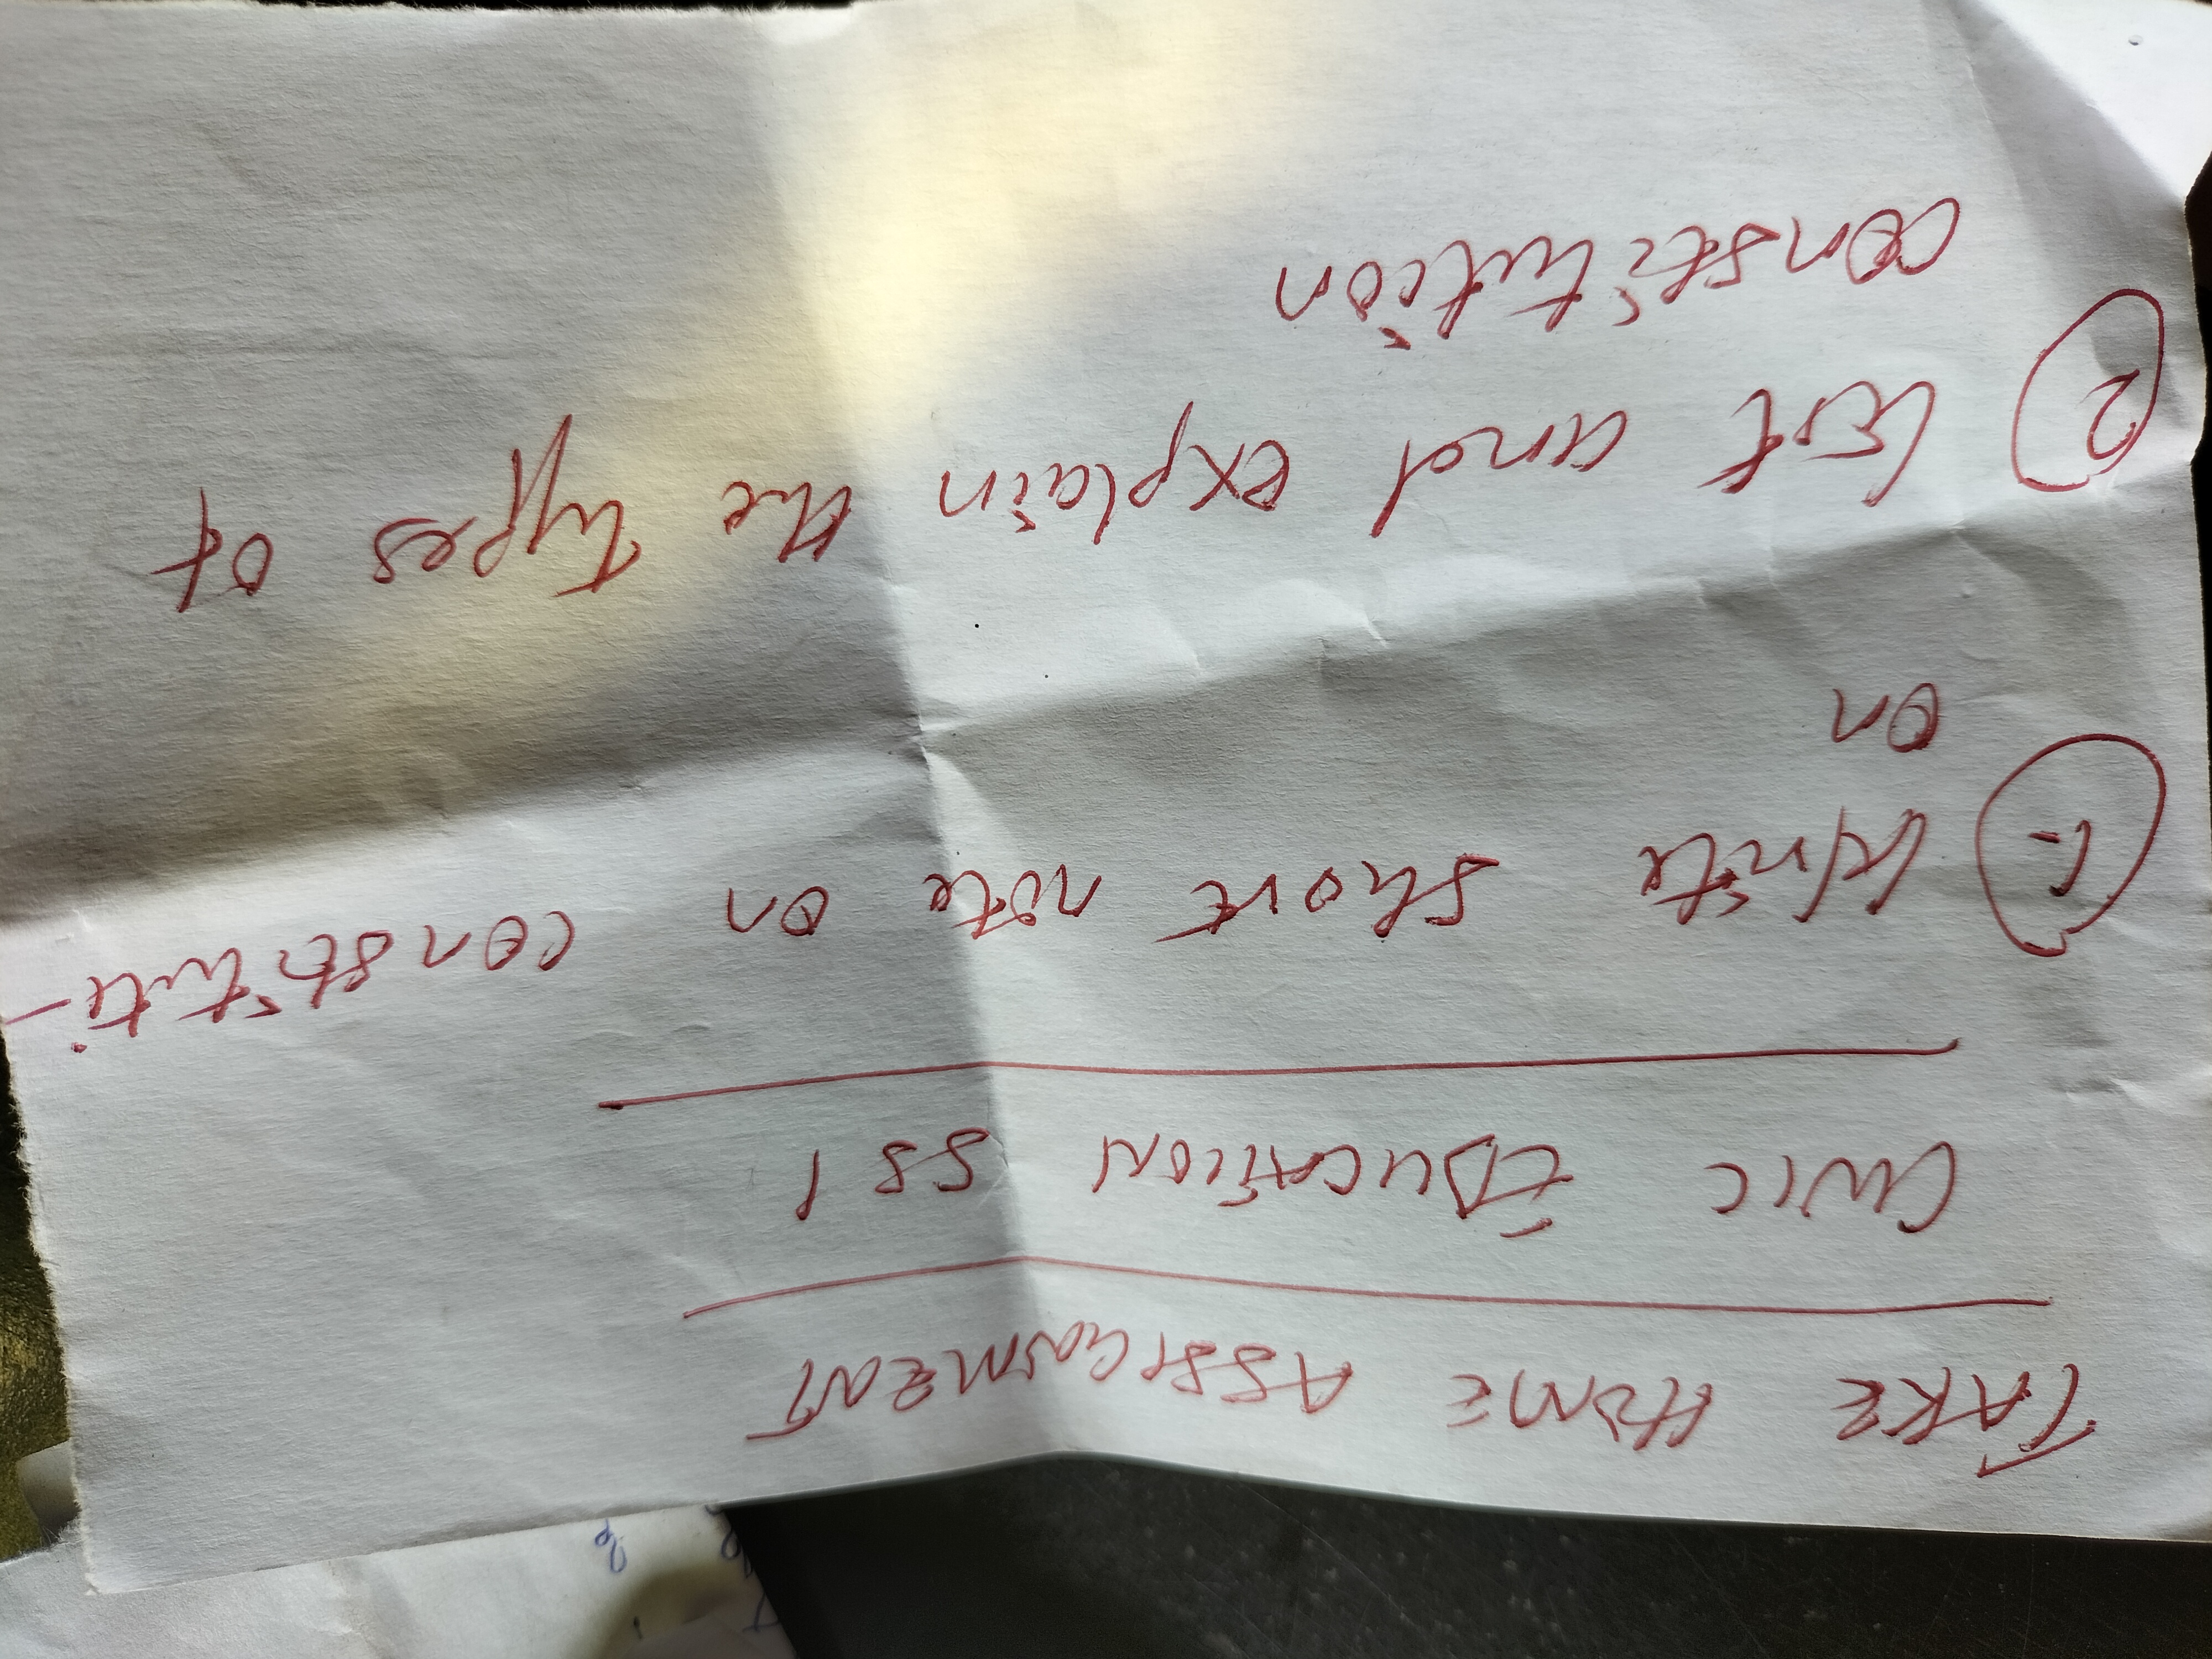 TAKE HOME ASSIGNMENT
CIVIC EDUCATION SS1
1. Write short note on constituti-
on
2 List and explain the types of
constitution